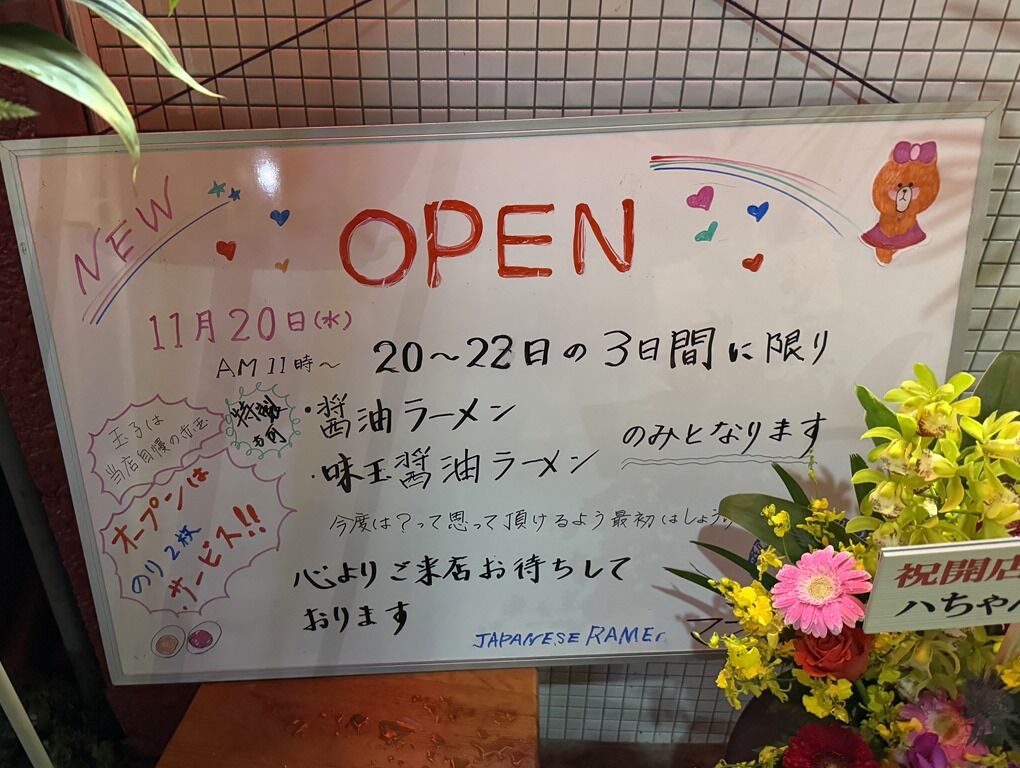 NEW
OPEN
11月20日(水)
AM11時〜
20〜22日の3日間に限り
・醤油ラーメン
・味玉醤油ラーメン
のみとなります
玉子は
当店自慢の赤玉
オープンは
のり2枚
サービス!!
今度は?って思って頂けるよう最初はしょう
心よりご来店お待ちして
おります
JAPANESE RAME
祝開店
ハちゃん